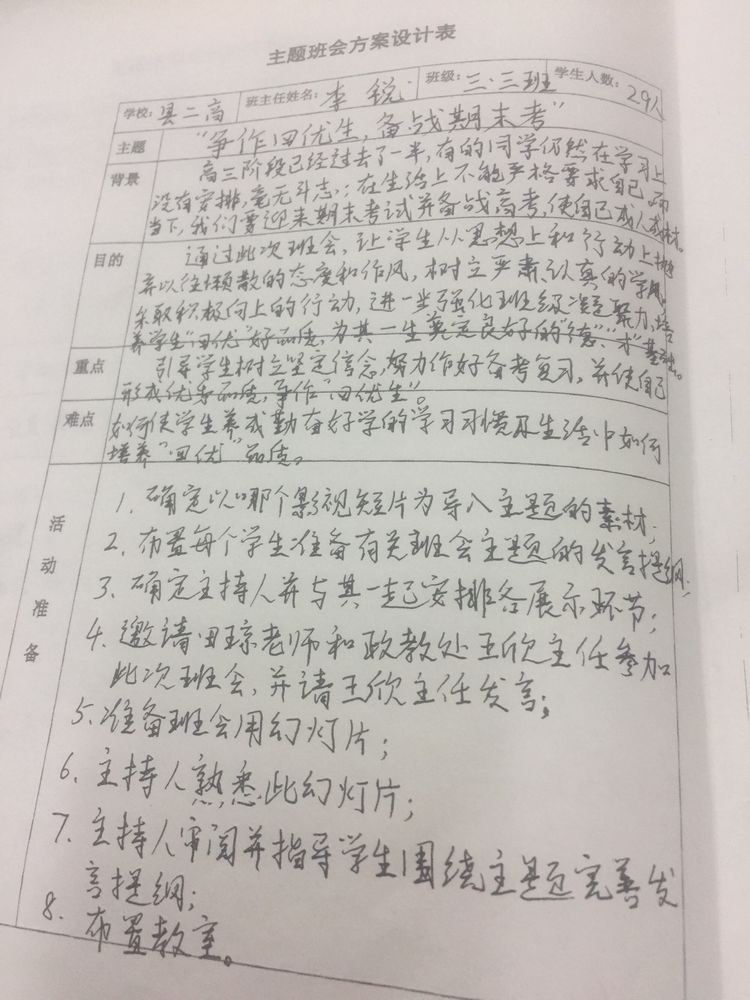 主题班会方案设计表
学校:县二高 班主任姓名:李锐 班级:三.三班 学生人数:29人
主题 "争作四优生,备战期末考"
背景 高三阶段已经过去了一半,有的同学仍然在学习上
没有安排,毫无斗志;在生活上不能严格要求自己,而
当下,我们要迎来期末考试并备战高考,使自己成人成材。
目的 通过此次班会,让学生从思想上和行动上摒
弃以往懒散的态度和作风,树立严肃认真的学风,
采取积极向上的行动,进一步强化班级凝聚力,培
养学生"四优"好品质,为其一生奠定良好的"德"、"才"基础。
重点 引导学生树立坚定信念,努力作好备考复习,并使自己
形成优秀品质,争作"四优生"。
难点 如何使学生养成勤奋好学的学习习惯及生活中如何
培养"四优"品质。
活动准备
1.确定以哪个影视短片为导入主题的素材;
2.布置每个学生准备有关班会主题的发言提纲;
3.确定主持人并与其一起安排各展示环节;
4.邀请田琼老师和政教处王欣主任参加
此次班会,并请王欣主任发言;
5.准备班会用幻灯片;
6.主持人熟悉此幻灯片;
7.主持人审阅并指导学生围绕主题完善发
言提纲;
8.布置教室。